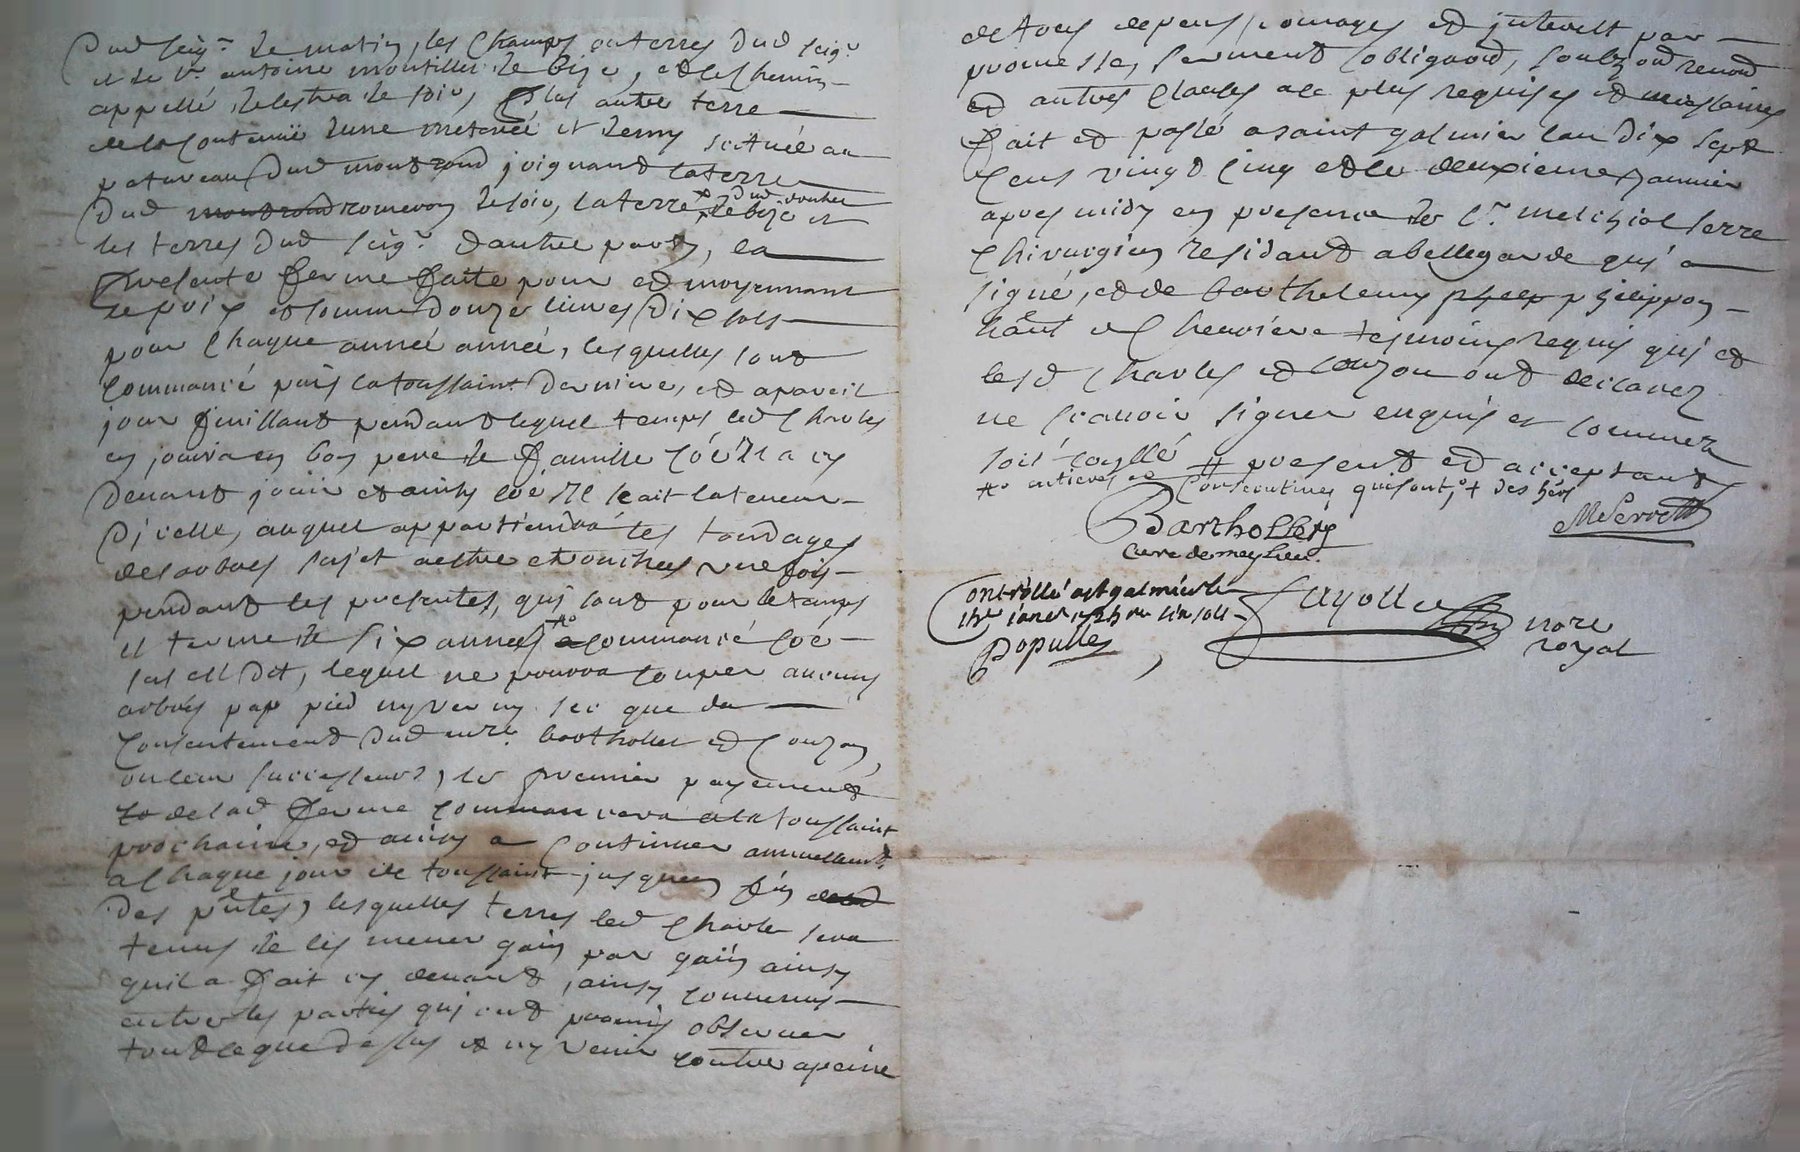 Dud seigr. de matin, les champs ou terres dud seigr.
et de sr. antoine montillier de bize, et le chemin
appellé de lestra de soir, Plus autre terre
de la contenue dune meterée et demy scituée au
patureau dud montrond joignant la terre
Dud romeron de soir, la terre dud de bize et
les terres dud seigr. dautre part, la
presente ferme faite pour et moyennant
le prix et somme douze livres dix sols
pour chaque année année, lesquelles sont
commancé puis la toussaint derniere, et a pareil
jour finillant pendant lequel temps led Charles
en jouira en bon pere de famille coe il a cy
devant joui et ainsy coe il scait la teneur
Dicelle, auquel appartiendra les tondages
des arbres sujet a estre etronchés une fois
pendant les presentes, qui sont pour le temps
et terme de six années commancé coe
sus est dit, lequel ne pourra couper aucuns
arbres par pied ny ver ny sec que du
consentement dud bartholley et Couzon,
ou leur successeurs, le premier payement
de lad ferme commancera a la toussaint
prochaine, et ainsy a continuer annuellement
a chaque jour de toussaint jusques fin
des pntes, lesquelles terres led Charles sera
tenus de les mener gain par gain ainsy
quil a fait cy devant, ainsy convenus
entre les parties qui ont promis observer
tout ce que dessus et ny venir contre a peine
de tous depens domages et interest par
promesse, serment obligaond, soubzon renond
et autres clauses a ce plus requises et necessaires
Fait et passé a saint galmier lan dix sept
cens vingt cinq et le deuxieme janvier
apres midy en presence de sr. melchiol serre
chirurgien residant a bellegarde qui a
signé, et de barthelemy philippon
habt de Cheuriere tesmoins requis qui et
lesd Charles et couzon ont declarez
ne scavoir signer enquis et sommez
soit coullé # present et acceptant
entieres et consecutives qui sont, + des hers
Bartholley MSerrett
Cure de meylieu.
Controllé a st galmier le
janer 1725 six sols
Fayolle nore
royal
Populles